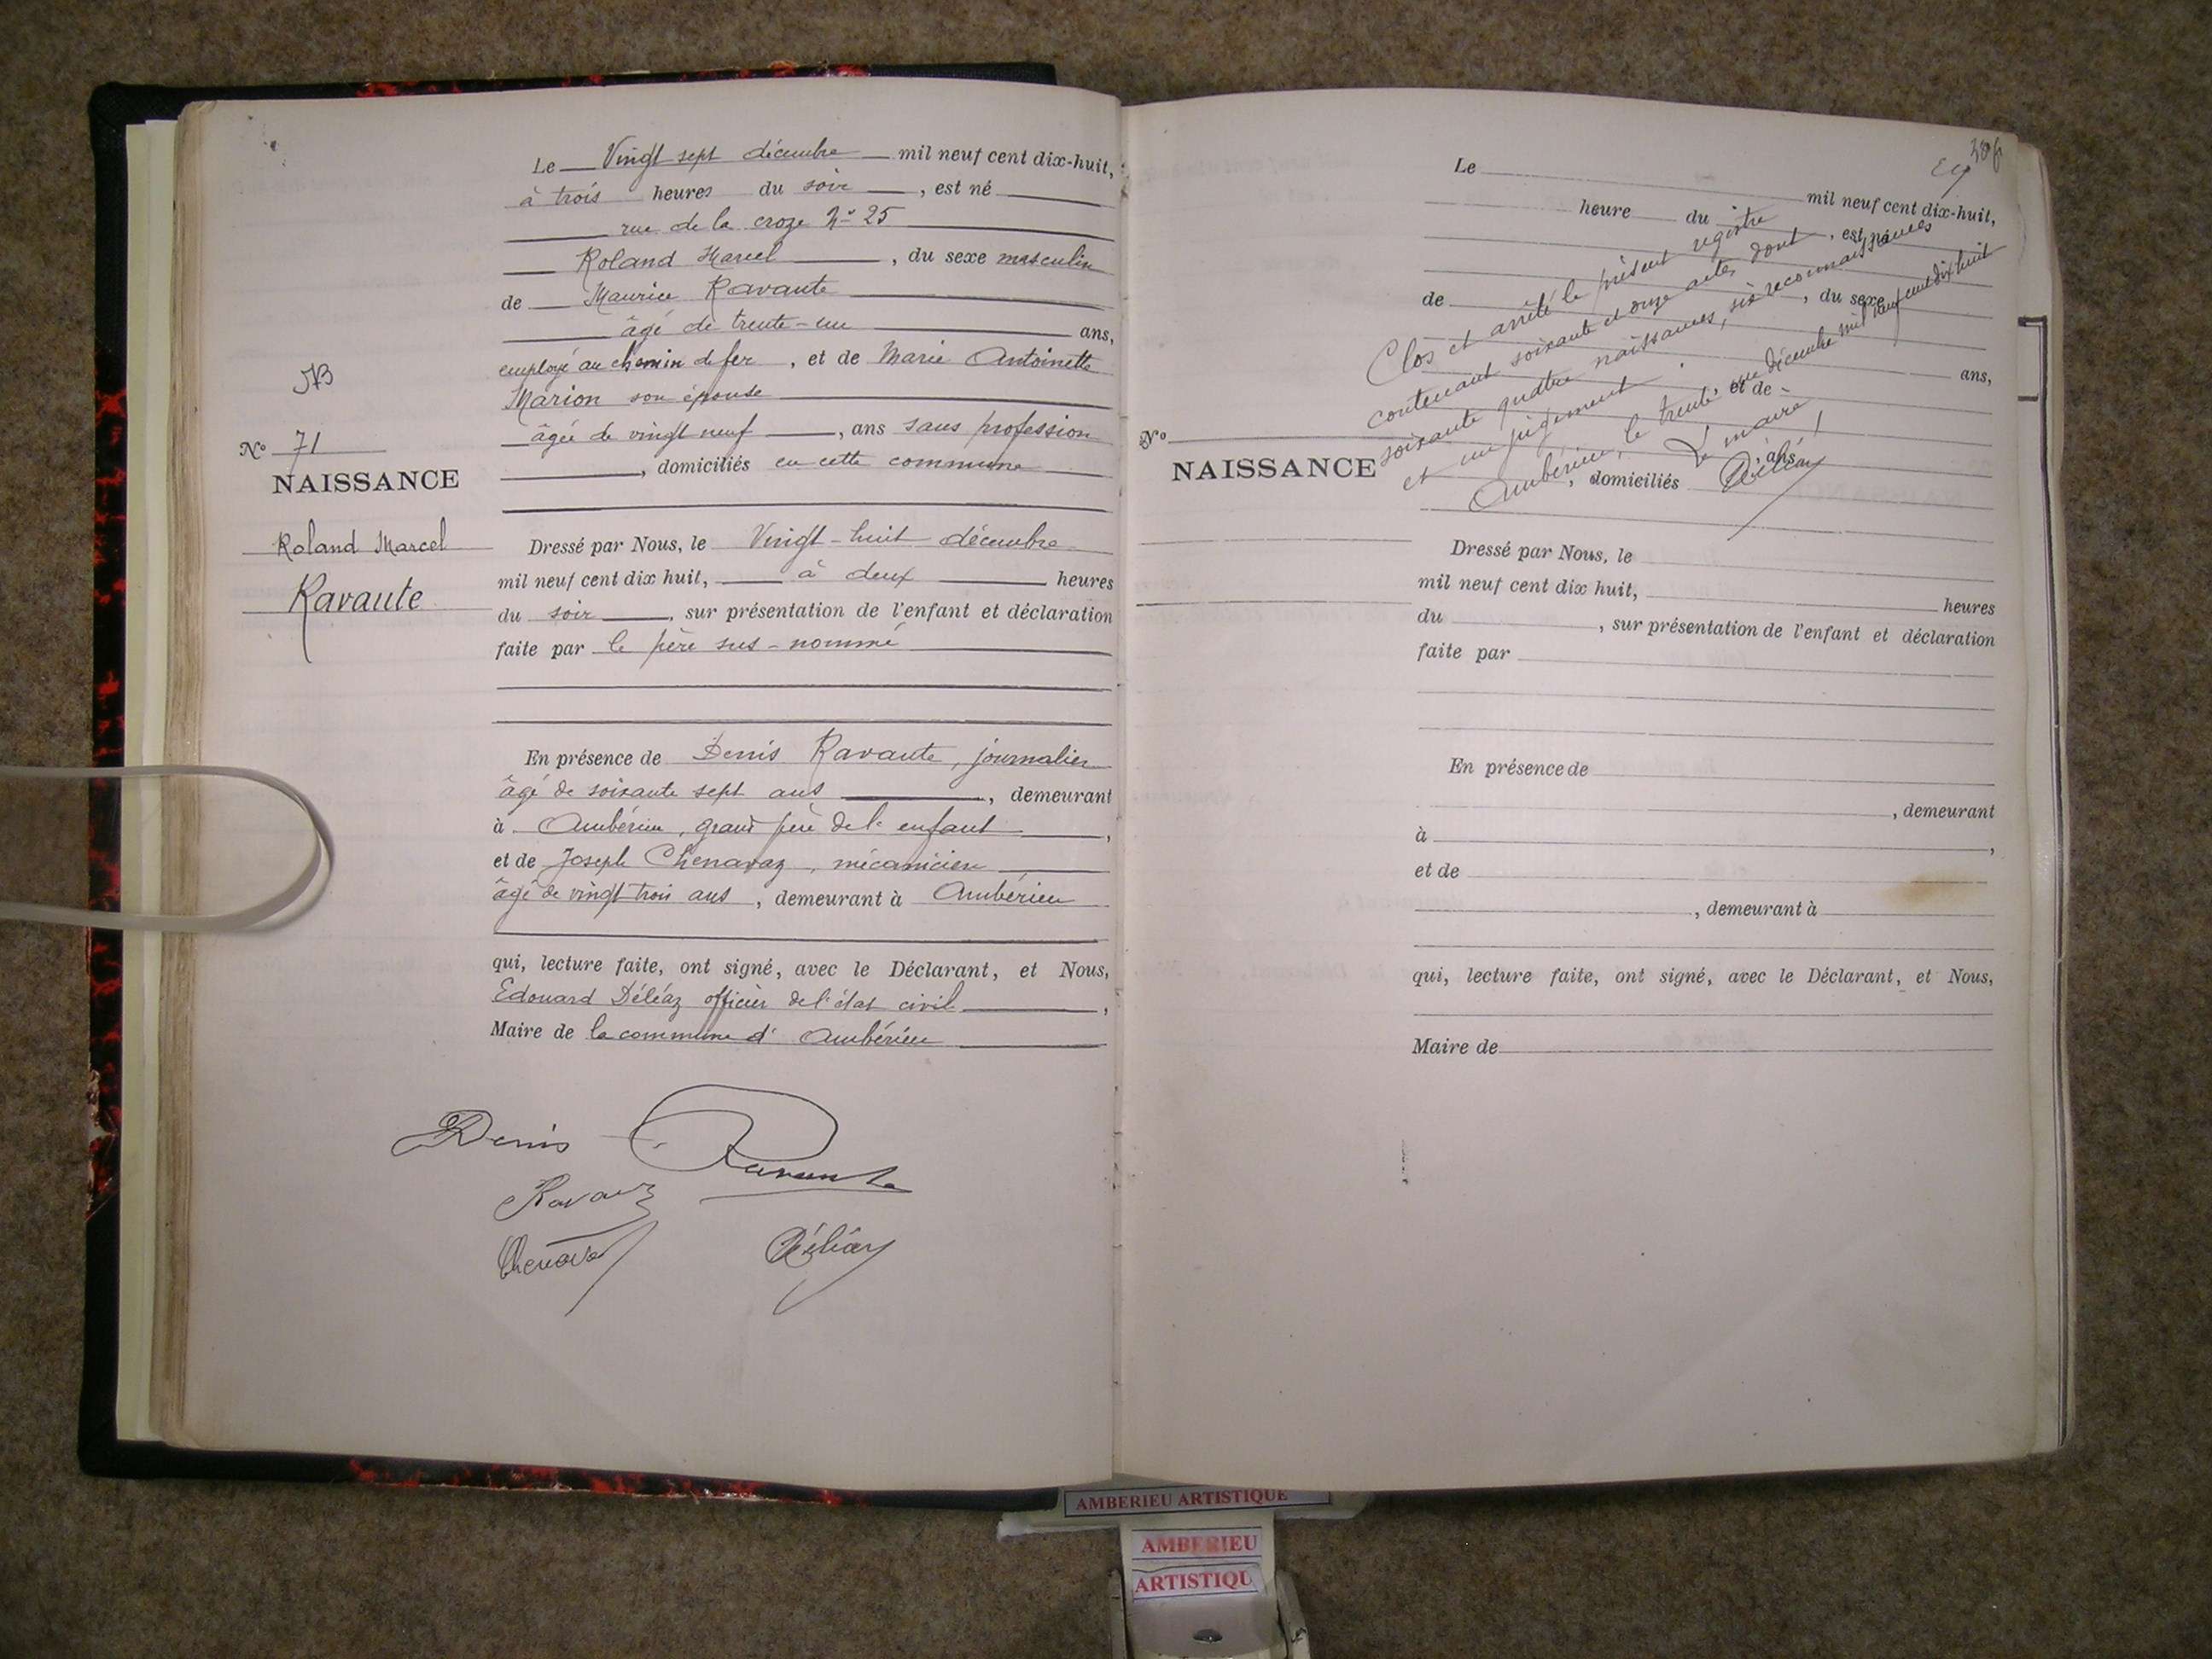 NB
N° 71
NAISSANCE
Roland Marcel
Ravaute
Le Vingt sept décembre mil neuf cent dix-huit,
à trois heures du soir, est né
rue de la croze N° 25
Roland Marcel, du sexe masculin
de Maurice Ravaute
âgé de trente-un ans,
employé au chemin de fer, et de Marie Antoinette
Marion son épouse
âgée de vingt neuf, ans sans profession
, domiciliés en cette commune
Dressé par Nous, le Vingt-huit décembre
mil neuf cent dix huit, à deux heures
du soir, sur présentation de l'enfant et déclaration
faite par le père sus-nommé
En présence de Denis Ravaute, journalier
âgé de soixante sept ans, demeurant
à Ambérieu, grand père de l'enfant,
et de Joseph Chenavaz, mécanicien
âgé de vingt trois ans, demeurant à Ambérieu
qui, lecture faite, ont signé, avec le Déclarant, et Nous,
Edouard Déléaz officier de l'état civil,
Maire de la commune d'Ambérieu
Denis Ravaute
Chenavaz Déléaz
Le mil neuf cent dix-huit,
heure du , est né
de , du sexe
ans,
et de
, ans
, domiciliés
N°
NAISSANCE
Clos et arrêté le présent registre
contenant soixante et onze actes dont
soixante quatre naissances, six reconnaissances
et un jugement.
Ambérieu, le trente et un décembre mil neuf cent dix huit
Le maire
Déléaz
Dressé par Nous, le
mil neuf cent dix huit, heures
du , sur présentation de l'enfant et déclaration
faite par
En présence de
, demeurant
à ,
et de
, demeurant à
qui, lecture faite, ont signé, avec le Déclarant, et Nous,
Maire de
AMBERIEU ARTISTIQUE
AMBERIEU
ARTISTIQU